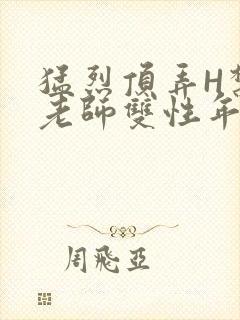 猛烈頂弄H
老師雙性年
周飛亞